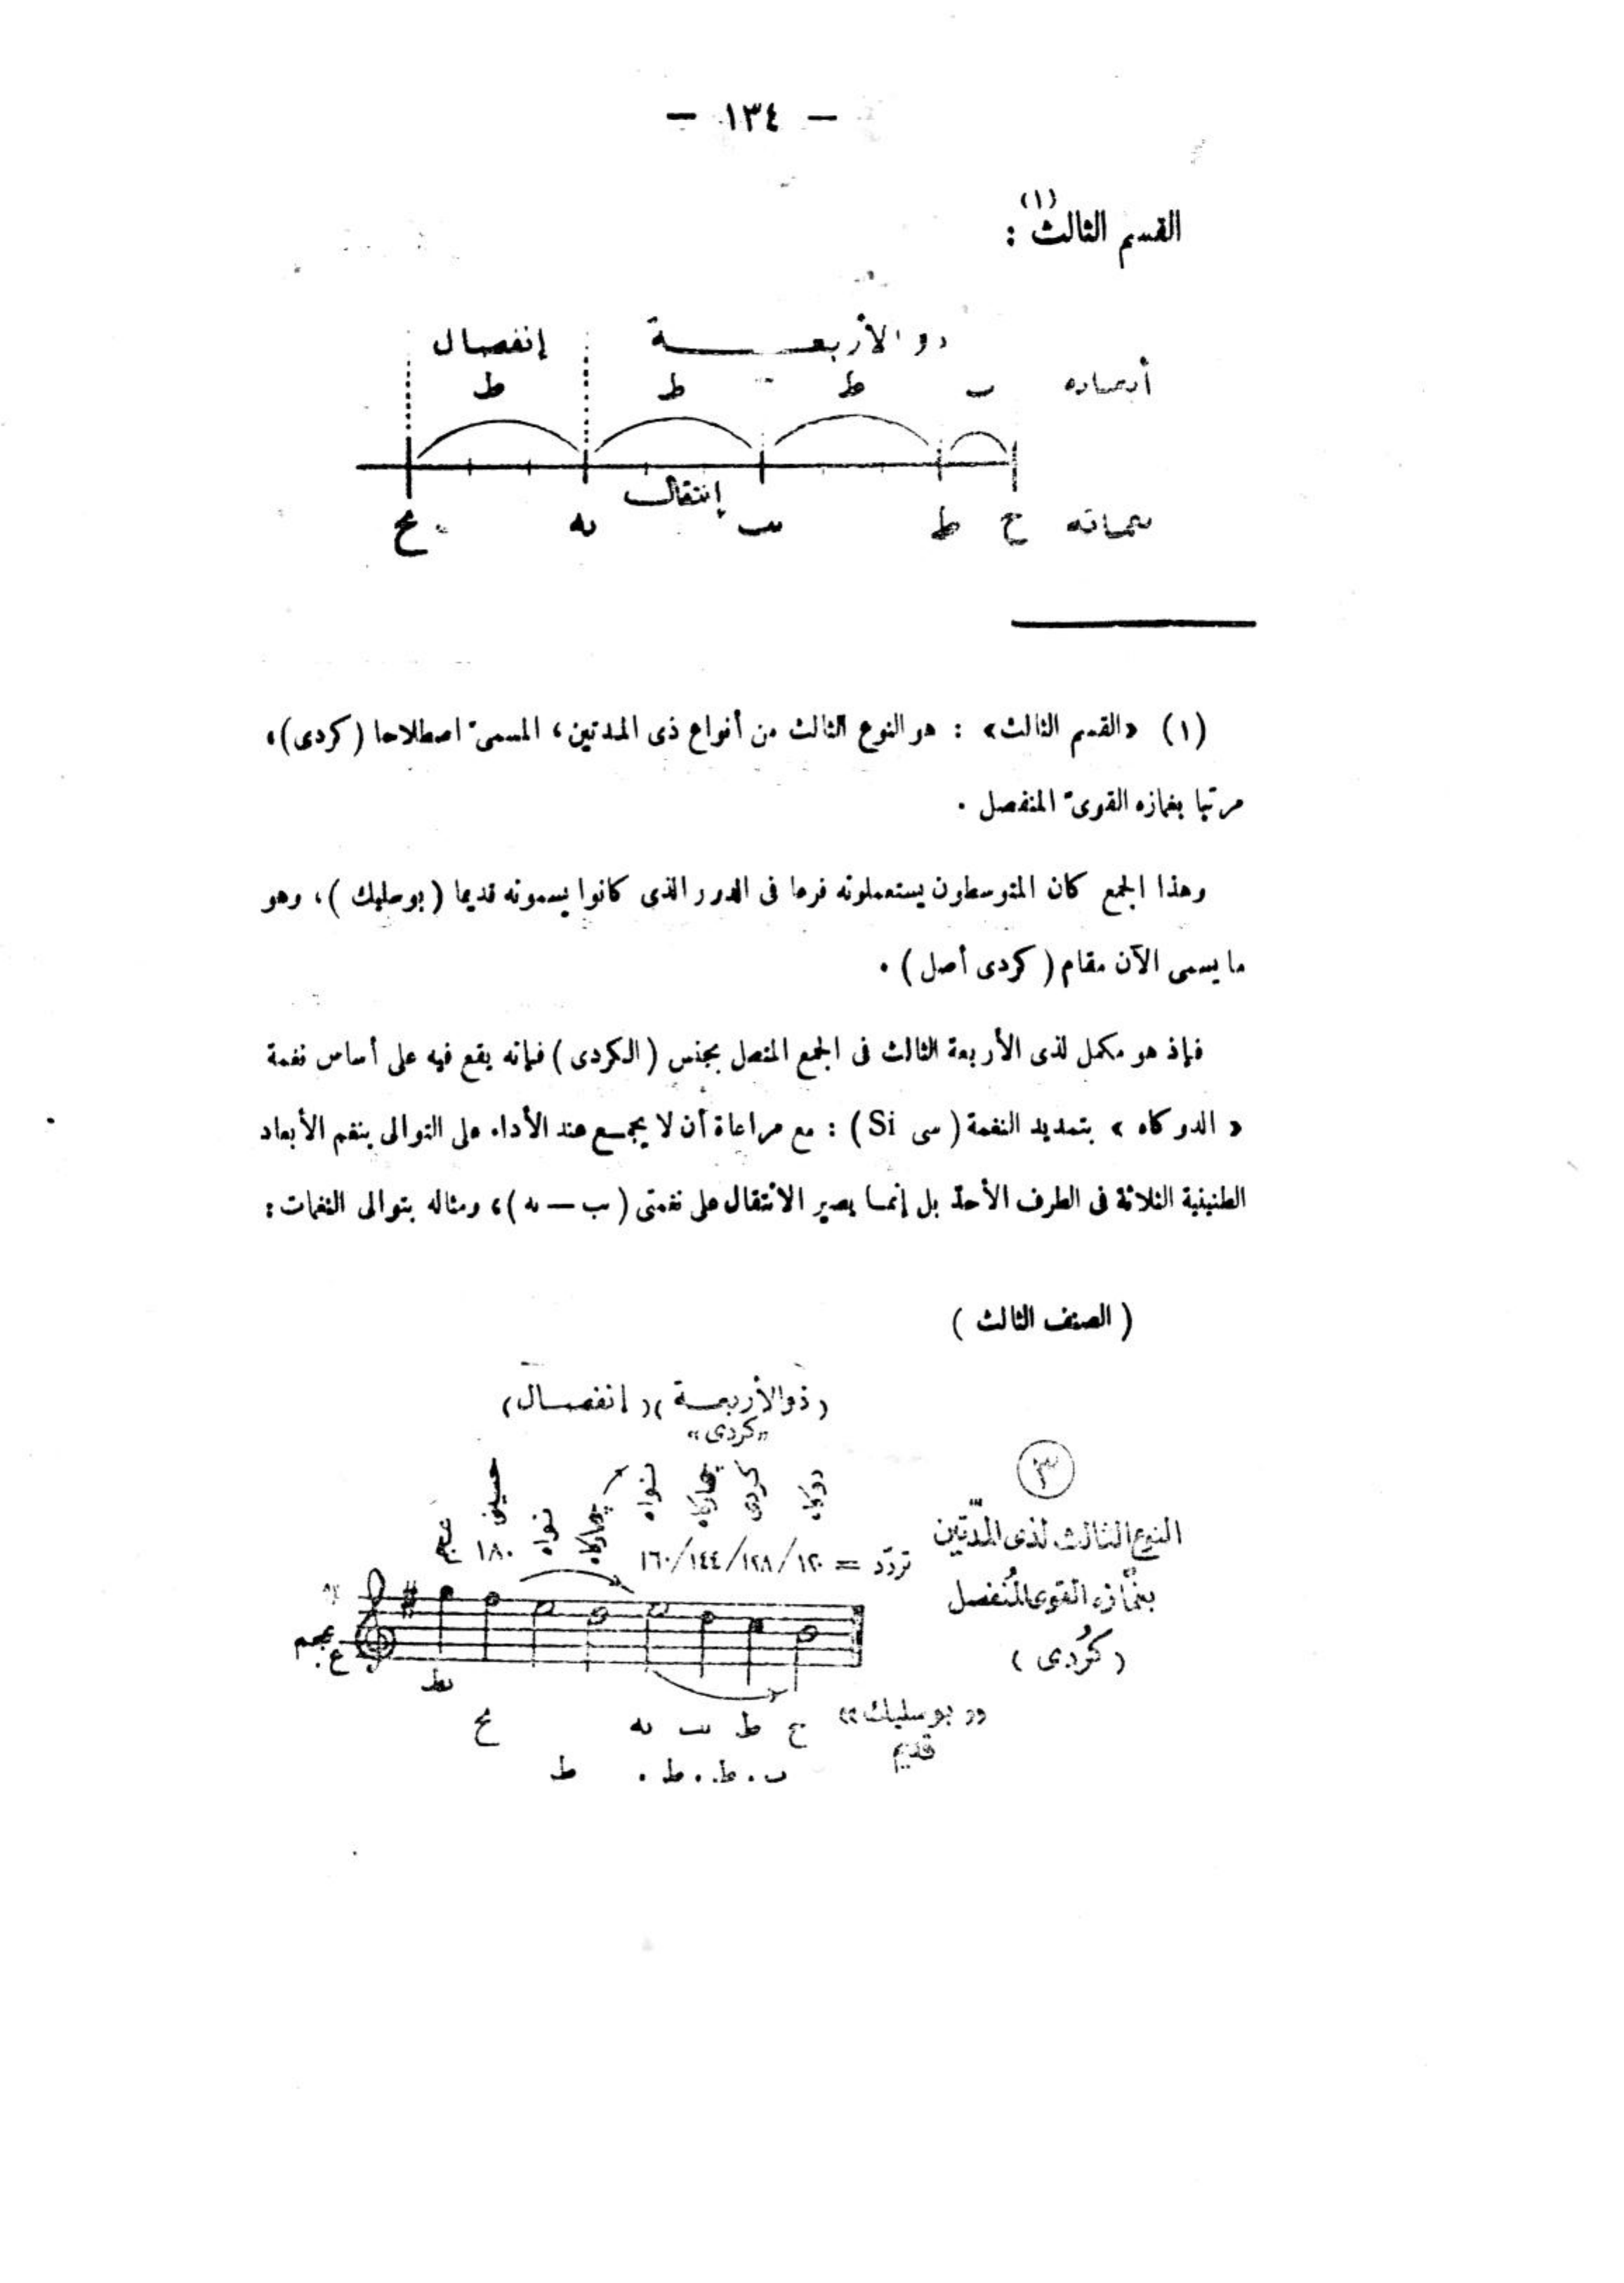 — ١٣٤ —
القسم الثالث (١) :
ذو الأربعـــــــة إنفصال
أبعاده ب ط ط ط
إنتقال
نغماته ح ط يب يه يح
(١) «القسم الثالث» : هو النوع الثالث من أنواع ذى المدتين، المسمىّ اصطلاحا (كردى)،
مرتبا بغمازه القوىّ المنفصل .
وهذا الجمع كان المتوسطون يستعملونه فرعا فى الدور الذى كانوا يسمونه قديما (بوسليك)، وهو
ما يسمى الآن مقام (كردى أصل) .
فإذ هو مكمل لذى الأربعة الثالث فى الجمع المتصل بجنس (الكردى) فإنه يقع فيه على أساس نغمة
« الدوكاه » بتمديد النغمة (سى Si) : مع مراعاة أن لا يجمع عند الأداء على التوالى بنغم الأبعاد
الطنينية الثلاثة فى الطرف الأحدّ بل إنمـا يصير الانتقال على نغمتى (يب — يه)، ومثاله بتوالى النغمات :
(الصنف الثالث)
(ذو الأربعـــة)(إنفصـال)
«كردى»
٣
دوكاه كردى چهاركاه نواه چهاركاه نواه حسينى عجم
النوع الثالث لذى المدّتين
تردّد = ١٢٠/١٢٨/١٤٤/١٦٠ ١٨٠
بغمّازه القوى المُنفصل
(كُردى)
عجم ع.
يط
«بوسليك» ح ط يب يه يح
قديم
ب . ط . ط . ط